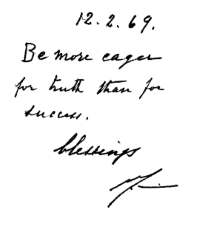 12.2.69.
Be more eager
for truth than for
success.
blessings